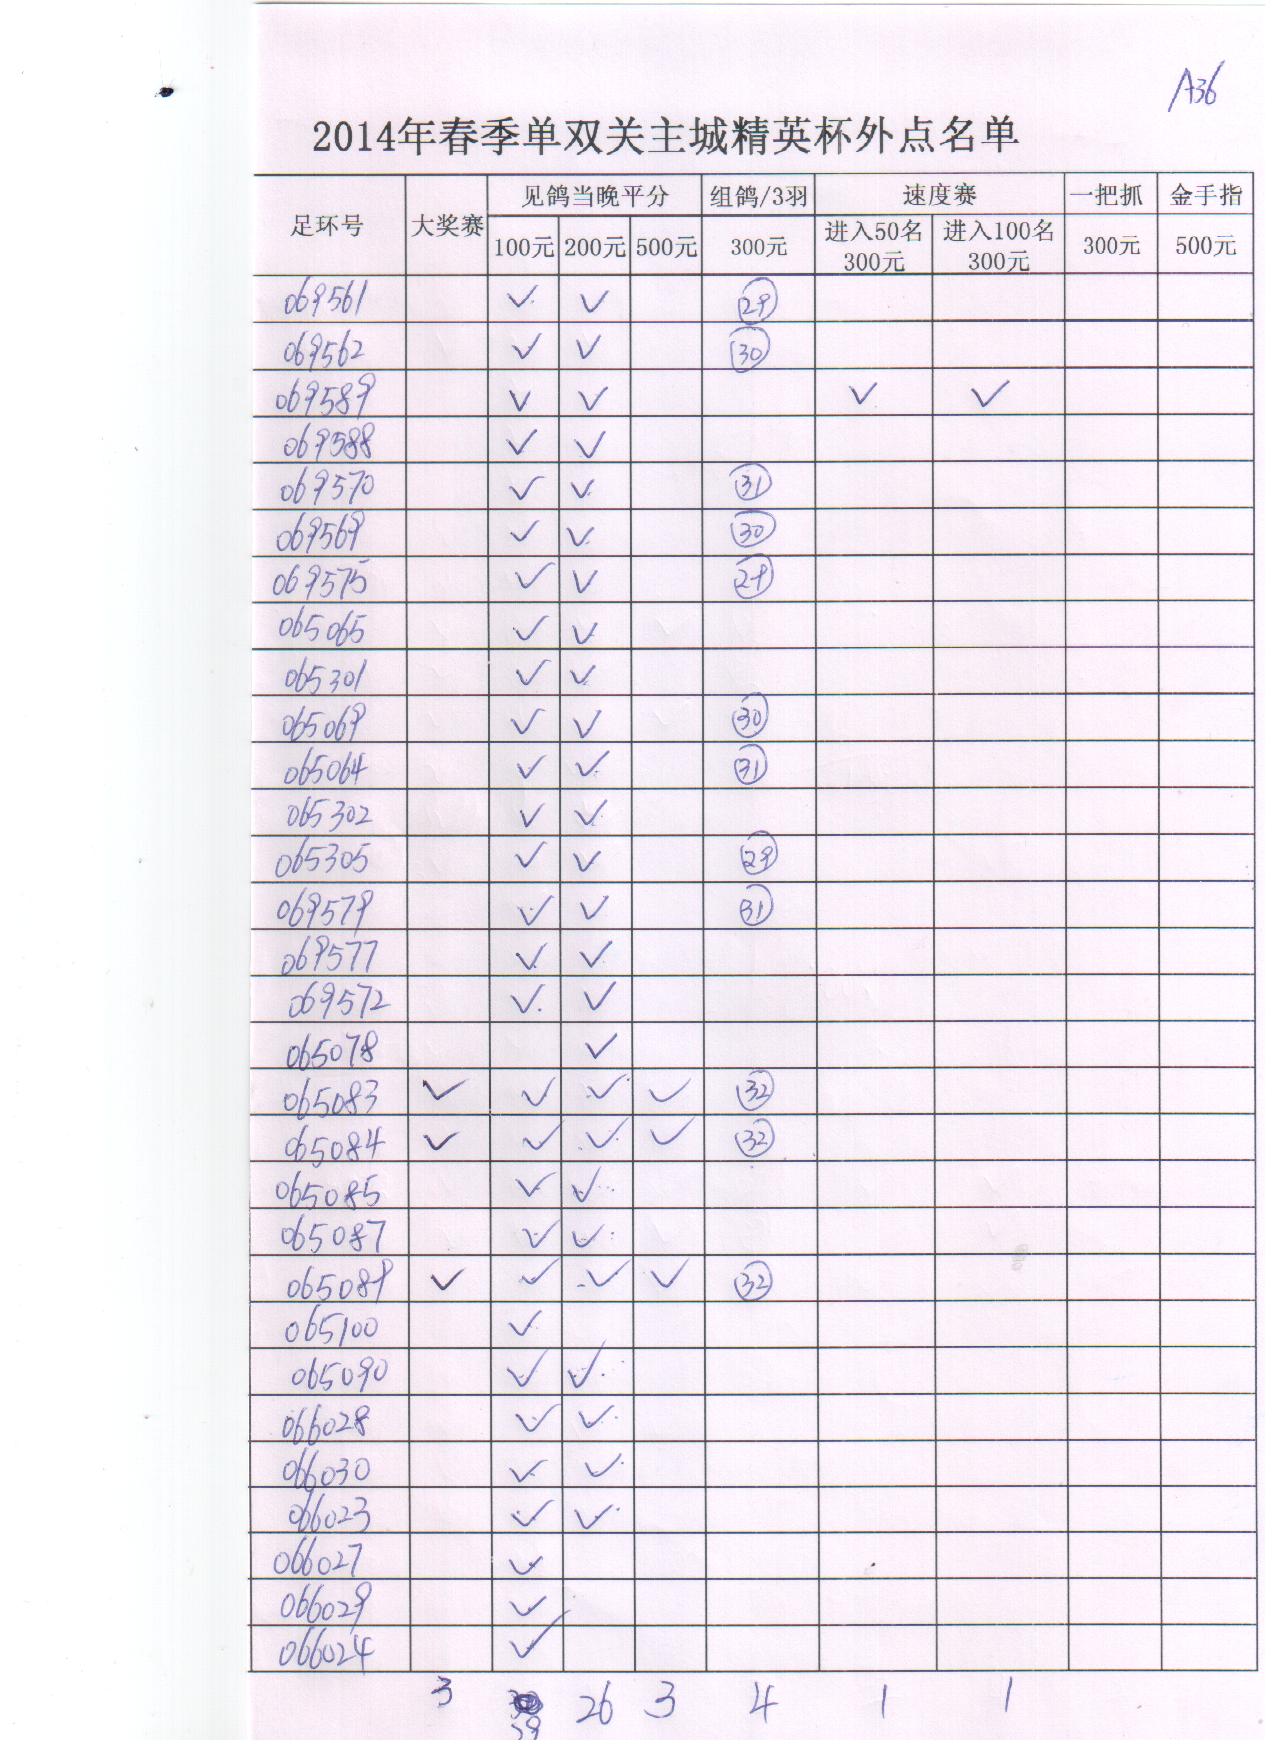 A36
2014年春季单双关主城精英杯外点名单
足环号 大奖赛 见鸽当晚平分 组鸽/3羽 速度赛 一把抓 金手指
100元 200元 500元 300元 进入50名 300元 进入100名 300元 300元 500元
069561 ✓ ✓ 29
069562 ✓ ✓ 30
069589 ✓ ✓ ✓ ✓
069588 ✓ ✓
069570 ✓ ✓ 31
069569 ✓ ✓ 30
069575 ✓ ✓ 29
065065 ✓ ✓
065301 ✓ ✓
065069 ✓ ✓ 30
065064 ✓ ✓ 31
065302 ✓ ✓
065305 ✓ ✓ 29
069579 ✓ ✓ 31
069577 ✓ ✓
069572 ✓ ✓
065078 ✓
065083 ✓ ✓ ✓ ✓ 32
065084 ✓ ✓ ✓ ✓ 32
065085 ✓ ✓
065087 ✓ ✓
065089 ✓ ✓ ✓ ✓ 32
065100 ✓
065090 ✓ ✓
066028 ✓ ✓
066030 ✓ ✓
066023 ✓ ✓
066027 ✓
066029 ✓
066024 ✓
3 26 3 4 1 1
29